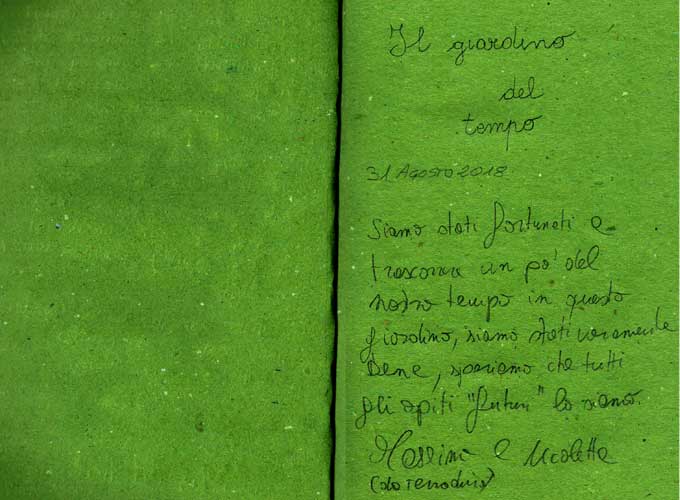 Il giardino
del
tempo
31 Agosto 2018
Siamo stati fortunati a
trascorrere un po' del
nostro tempo in questo
giardino, siamo stati veramente
bene, speriamo che tutti
gli ospiti "futuri" lo siano.
Massimo e Nicoletta
(da